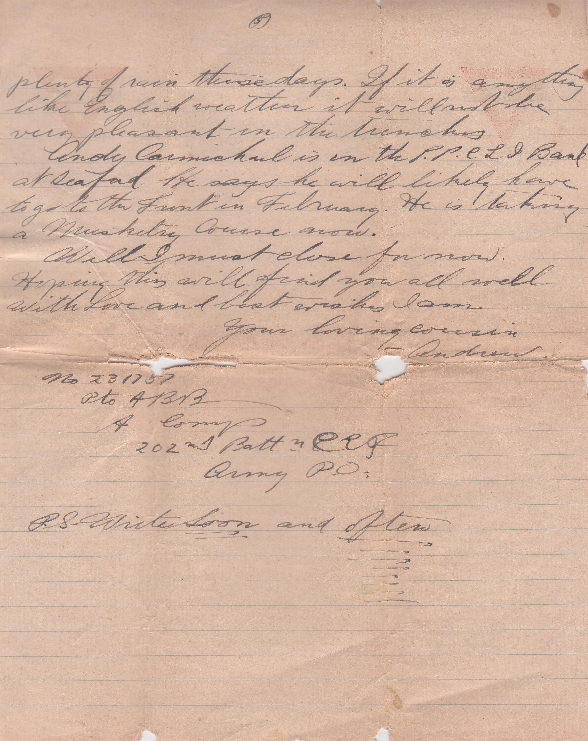 (5)
plenty of rain these days. If it is anything
like English weather it will not be
very pleasant in the trenches
Andy Carmichael is in the P.P.C.L.I Band
at Seaford He says he will likely have
to go to the Front in February. He is taking
a Musketry Course now.
Well I must close for now.
Hoping this will find you all well
with love and best wishes I am
Your loving cousin
Andrew.
No 231757
Pte A B B
A Comp
202nd Batt n C E F
Army P.O.
P.S. Write Soon and often